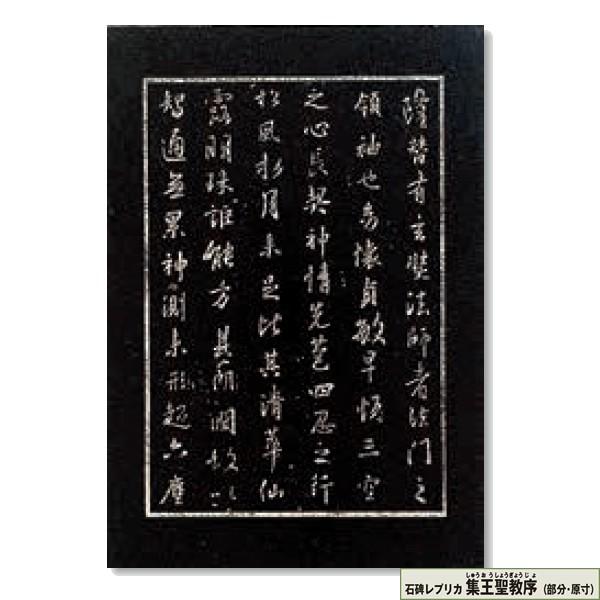 隆替有玄奘法師者法門之
領袖也幼懷貞敏早悟三空
之心長契神情先苞四忍之行
松風水月未足比其清華仙
露明珠詎能方其朗潤故以
智通無累神測未形超六塵
しゅうおうしょうぎょうじょ
石碑レプリカ 集王聖教序 (部分・原寸)